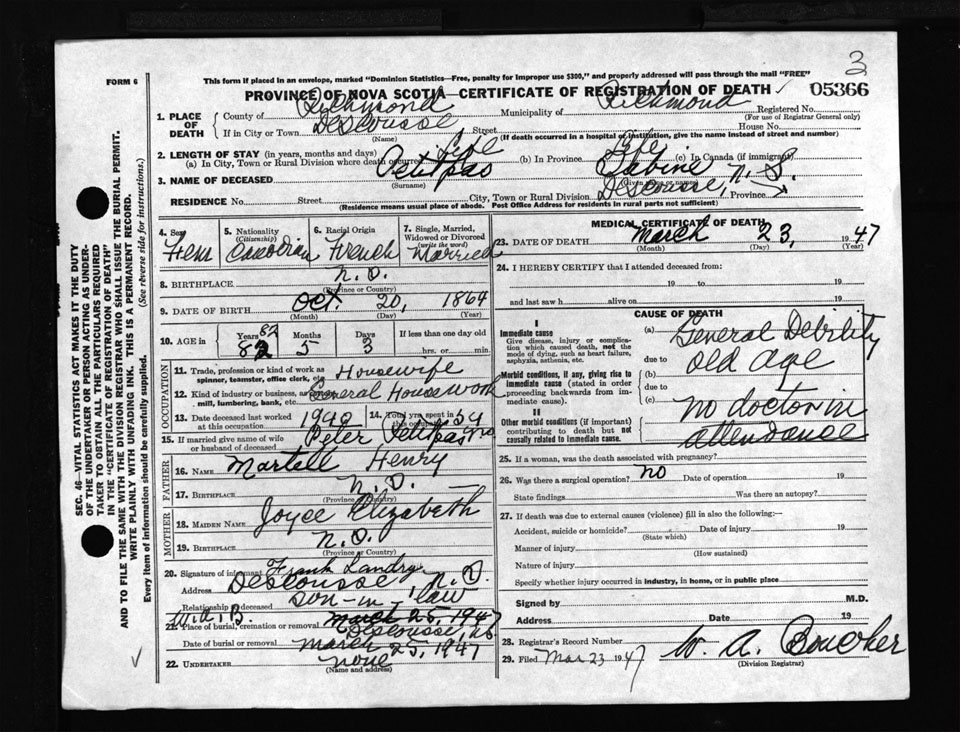 3
FORM 6
This form if placed in an envelope, marked "Dominion Statistics—Free, penalty for improper use $300," and properly addressed will pass through the mail "FREE"
PROVINCE OF NOVA SCOTIA—CERTIFICATE OF REGISTRATION OF DEATH ✓ 05366
SEC. 46—VITAL STATISTICS ACT MAKES IT THE DUTY
OF THE UNDERTAKER OR PERSON ACTING AS UNDER-
TAKER TO OBTAIN ALL THE PARTICULARS REQUIRED
IN THE "CERTIFICATE OF REGISTRATION OF DEATH"
AND TO FILE THE SAME WITH THE DIVISION REGISTRAR WHO SHALL ISSUE THE BURIAL PERMIT.
WRITE PLAINLY WITH UNFADING INK. THIS IS A PERMANENT RECORD.
Every item of information should be carefully supplied. (See reverse side for instructions.)
1. PLACE OF DEATH
County of Richmond Municipality of Richmond Registered No.
(For use of Registrar General only)
If in City or Town Descousse Street House No.
(Name) (If death occurred in a hospital or institution, give the name instead of street and number)
2. LENGTH OF STAY (in years, months and days)
(a) In City, Town or Rural Division where death occurred Life (b) In Province Life (c) In Canada (if immigrant)
3. NAME OF DECEASED Petitpas Sabine
(Surname) (Given name or names)
RESIDENCE No. Street City, Town or Rural Division Descousse, N. S. Province
(Residence means usual place of abode. Post Office Address for residents in rural parts not sufficient)
4. Sex Fem
5. Nationality (Citizenship) Canadian
6. Racial Origin French
7. Single, Married, Widowed or Divorced (write the word) Married
8. BIRTHPLACE N. S.
(Province or Country)
9. DATE OF BIRTH Oct. 20, 1864
(Month) (Day) (Year)
10. AGE in Years 82 82 Months 5 Days 3 If less than one day old
hrs. or min.
OCCUPATION
11. Trade, profession or kind of work as spinner, teamster, office clerk, etc. Housewife
12. Kind of industry or business, as mill, lumbering, bank, etc. General Housework
13. Date deceased last worked at this occupation 1940 14. Total yrs spent in this occupation 54
15. If married give name of wife or husband of deceased Peter Petitpas
FATHER
16. NAME Martell Henry
17. BIRTHPLACE N. S.
(Province or Country)
MOTHER
18. MAIDEN NAME Joyce Elizabeth
19. BIRTHPLACE N. S.
(Province or Country)
20. Signature of informant Frank Landry
Address Descousse, N. S.
Relationship to deceased son-in-law
W. A. B. March 25, 1947
21. Place of burial, cremation or removal Descousse, N.S.
Date of burial or removal March 25, 1947
22. UNDERTAKER none
(Name and address)
✓
MEDICAL CERTIFICATE OF DEATH
23. DATE OF DEATH March 23, 1947
(Month) (Day) (Year)
24. I HEREBY CERTIFY that I attended deceased from:
19 to 19
and last saw h alive on 19
CAUSE OF DEATH
I
Immediate cause
Give disease, injury or complication which caused death, not the mode of dying, such as heart failure, asphyxia, asthenia, etc.
(a) General Debility
due to
Morbid conditions, if any, giving rise to immediate cause (stated in order proceeding backwards from immediate cause).
(b) old age
due to
(c)
II
Other morbid conditions (if important) contributing to death but not causally related to immediate cause.
no doctor in
attendance
25. If a woman, was the death associated with pregnancy?
26. Was there a surgical operation? no Date of operation 19
State findings Was there an autopsy?
27. If death was due to external causes (violence) fill in also the following:—
Accident, suicide or homicide? Date of injury 19
(State which)
Manner of injury
(How sustained)
Nature of injury
Specify whether injury occurred in industry, in home, or in public place
Signed by M.D.
Address Date 19
28. Registrar's Record Number
29. Filed Mar 23 1947 W. A. Boucher
(Division Registrar)